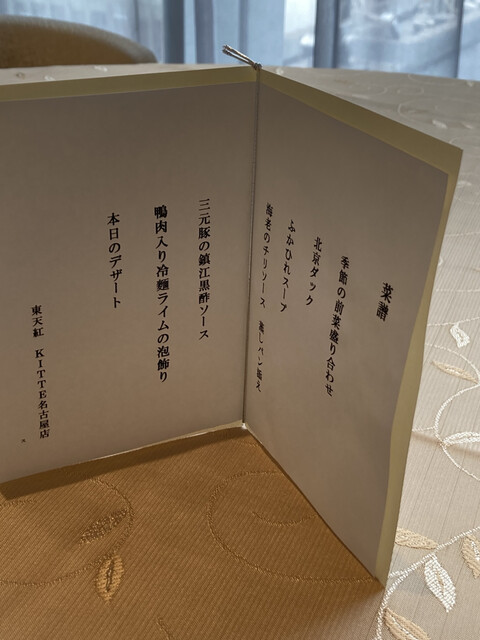 菜譜
季節の前菜盛り合わせ
北京ダック
ふかひれスープ
海老のチリソース 蒸しパン添え
三元豚の鎮江黒酢ソース
鴨肉入り冷麺ライムの泡飾り
本日のデザート
東天紅 KITTE名古屋店